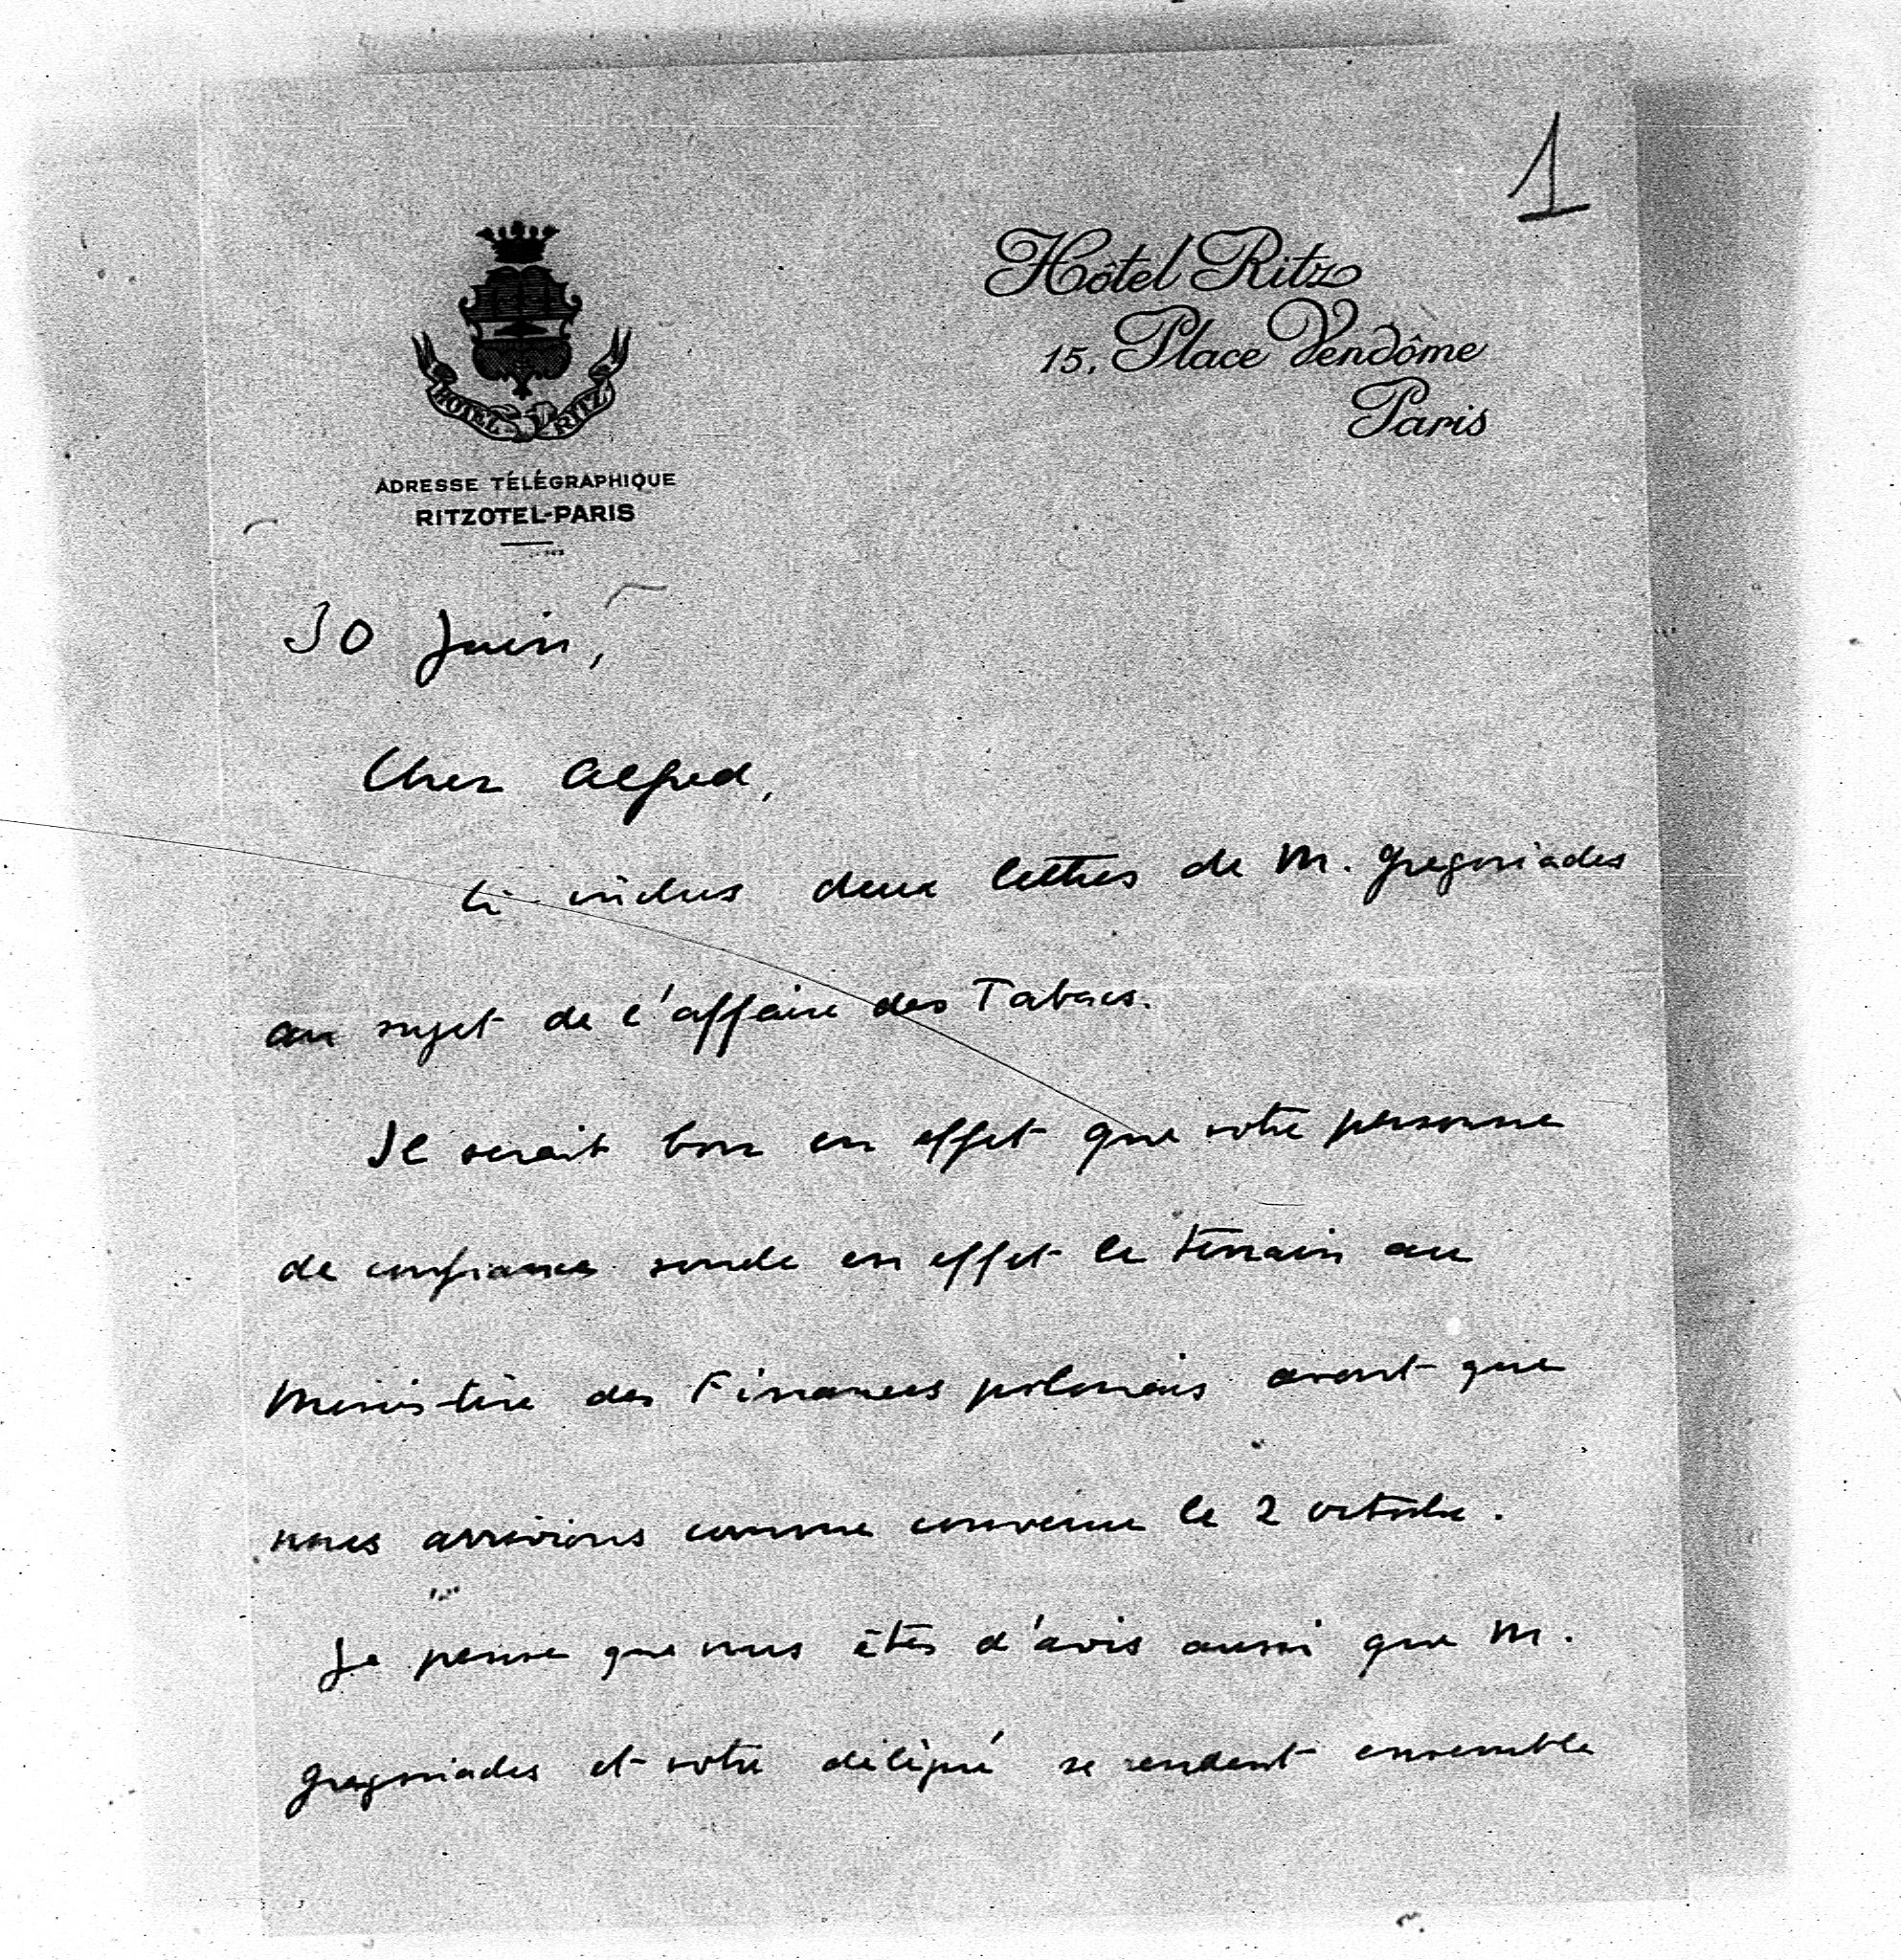 1
Hôtel Ritz
15, Place Vendôme
Paris
HOTEL RITZ
ADRESSE TÉLÉGRAPHIQUE
RITZOTEL-PARIS
30 Juin,
Cher Alfred,
Ci inclus deux lettres de M. Gregoriades
au sujet de l'affaire des Tabacs.
Il serait bon en effet que votre personne
de confiance sonde en effet le terrain au
Ministère des Finances polonais avant que
nous arrivions comme convenu le 2 octobre.
Je pense que vous êtes d'avis aussi que M.
Gregoriades et votre délégué se rendent ensemble